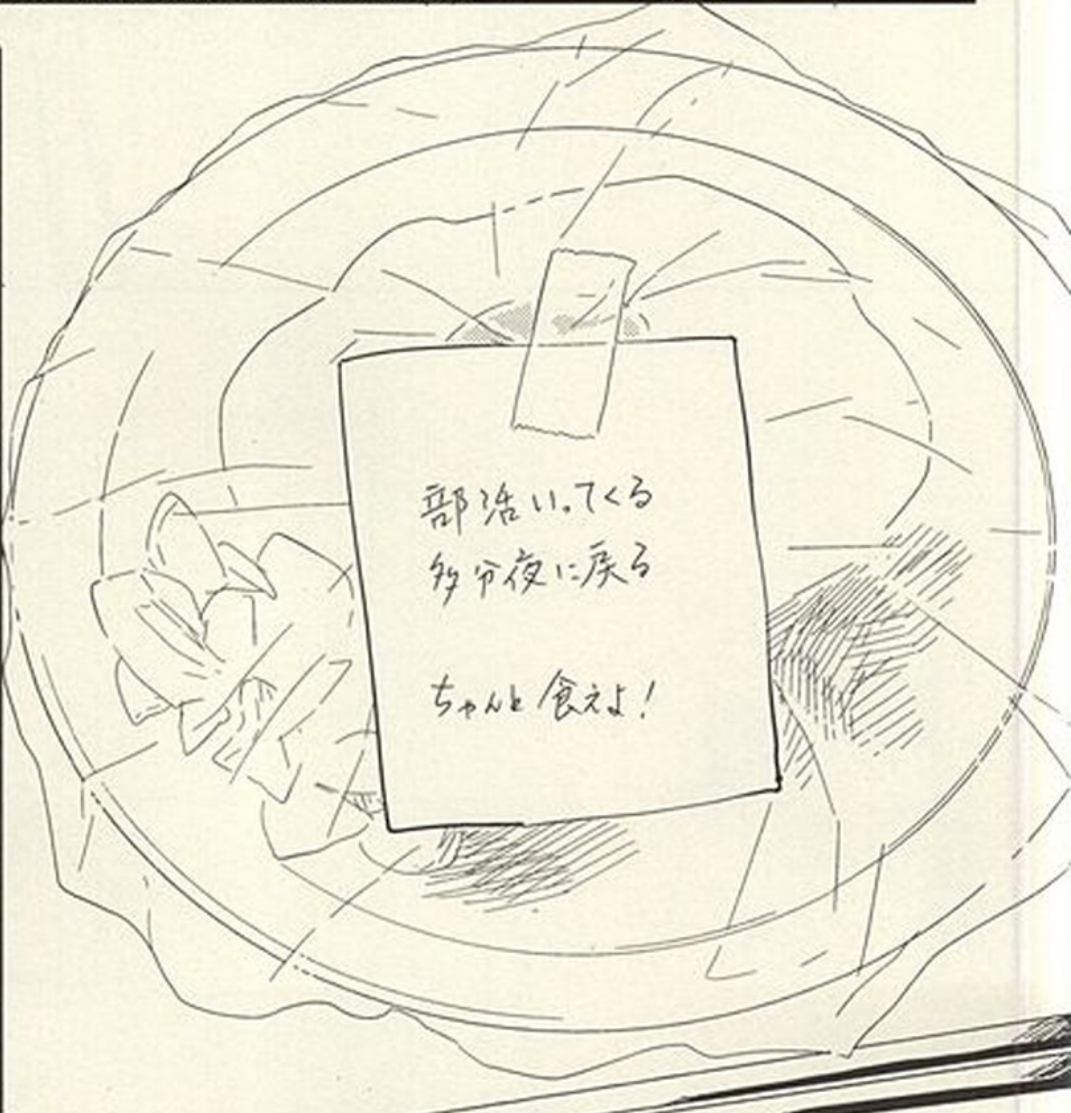 部活いってくる
多分夜に戻る
ちゃんと食えよ!